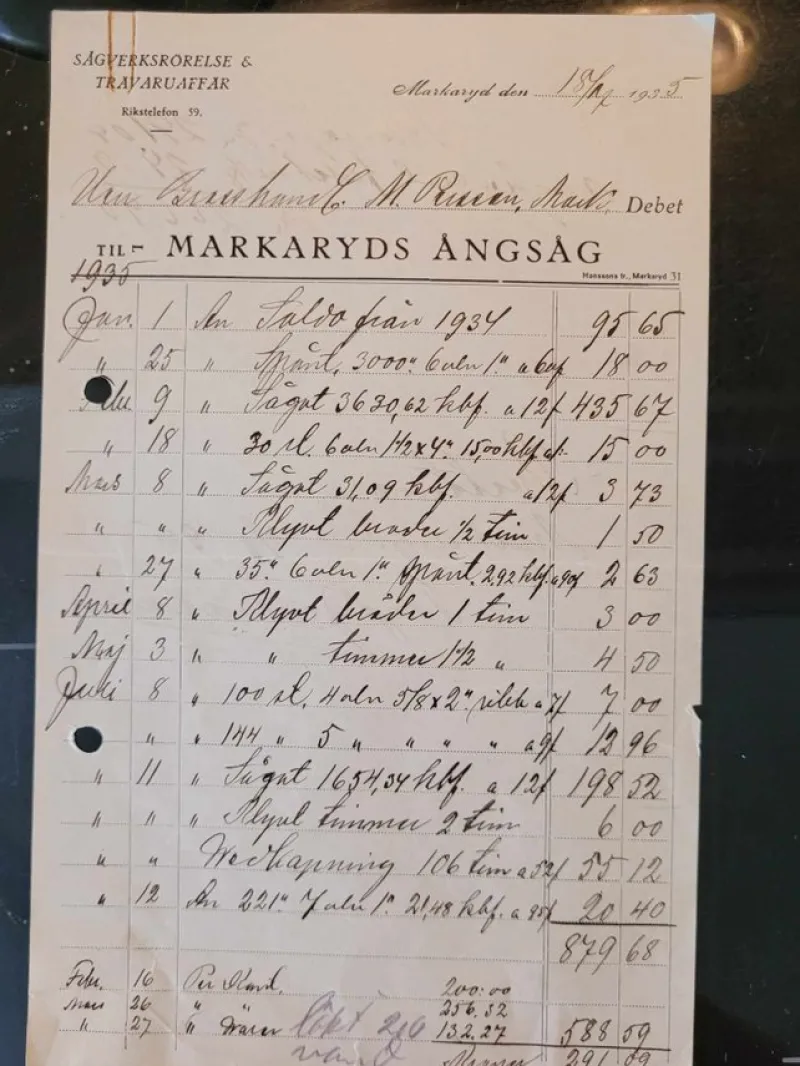 SÅGVERKSRÖRELSE &
TRÄVARUAFFÄR
Rikstelefon 59.
Markaryd den 18/ 1935
M. Mark. Debet
TILL MARKARYDS ÅNGSÅG
Hanssons tr., Markaryd 31
1935
Jan. 1 An Saldo från 1934 95 65
" 25 " Spånt. 3000" 6 aln 1" a 60f 18 00
Febr. 9 " Sågat 3630,62 kbf. a 12f 435 67
" 18 " 30 st. 6 aln 1 1/2 x 4" 15,00 kbf 15 00
Mars 8 " Sågat 31,09 kbf. a 12f 3 73
" " " Klyvt bräder 1/2 tim 1 50
" 27 " 35" 6 aln 1" spånt. 2,92 kbf. a 90f 2 63
April 8 " Klyvt bräder 1 tim 3 00
Maj 3 " " timmer 1 1/2 " 4 50
Juni 8 " 100 st. 4 aln 5/8 x 2" ribb a 7f 7 00
" " 144 " 5 " " " " a 9f 12 96
" 11 " Sågat 1654,34 kbf. a 12f 198 52
" " " Klyvt timmer 2 tim 6 00
" " Wedkapning 106 tim a 52f 55 12
" 12 An 221" 7 aln 1" 21,48 kbf. a 95f 20 40
879 68
Febr. 16 Per Kond. 200:00
Mars 26 " " 256.32
" 27 " Waror 132.27 588 59
Kronor 291 09